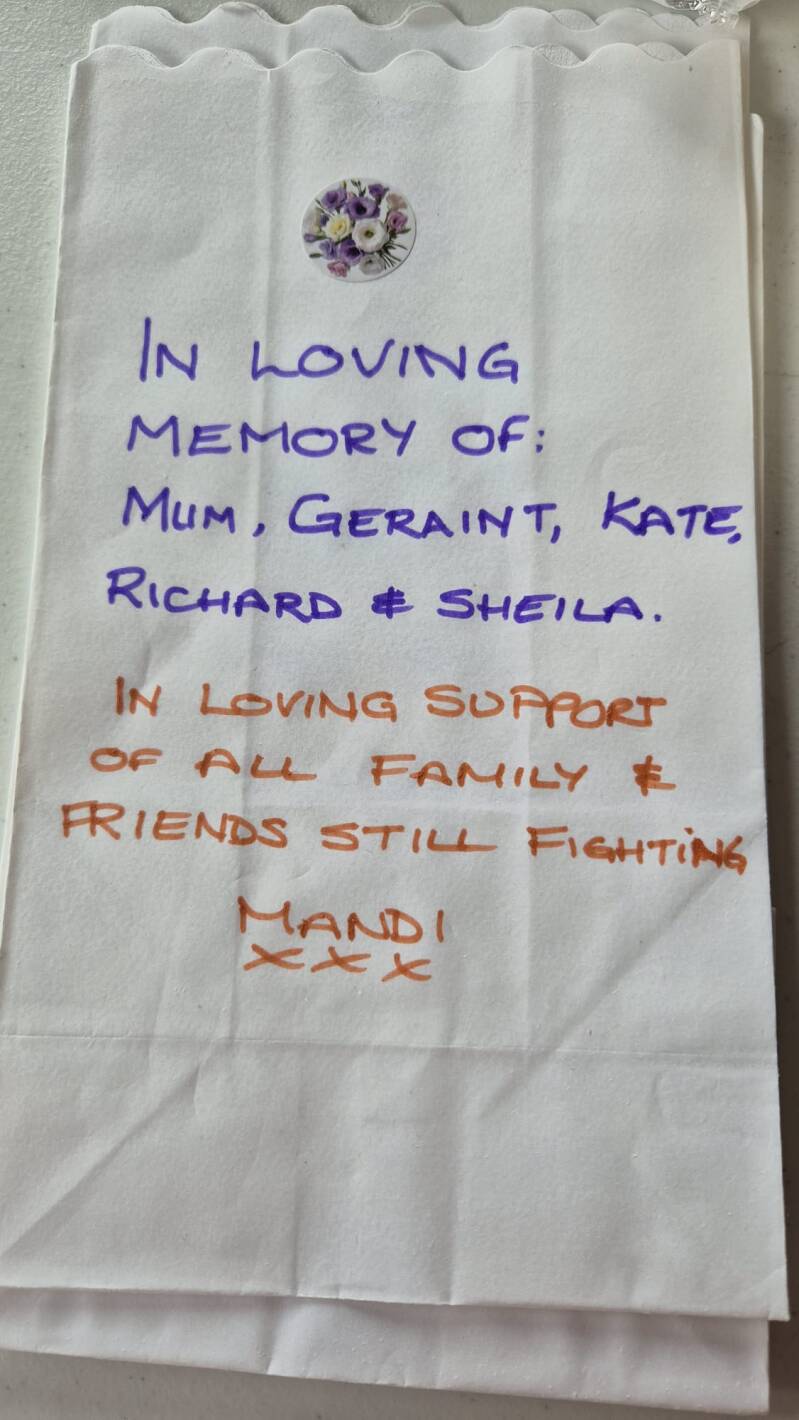 IN LOVING
MEMORY OF:
MUM, GERAINT, KATE,
RICHARD & SHEILA.
IN LOVING SUPPORT
OF ALL FAMILY &
FRIENDS STILL FIGHTING
MANDI
xxx